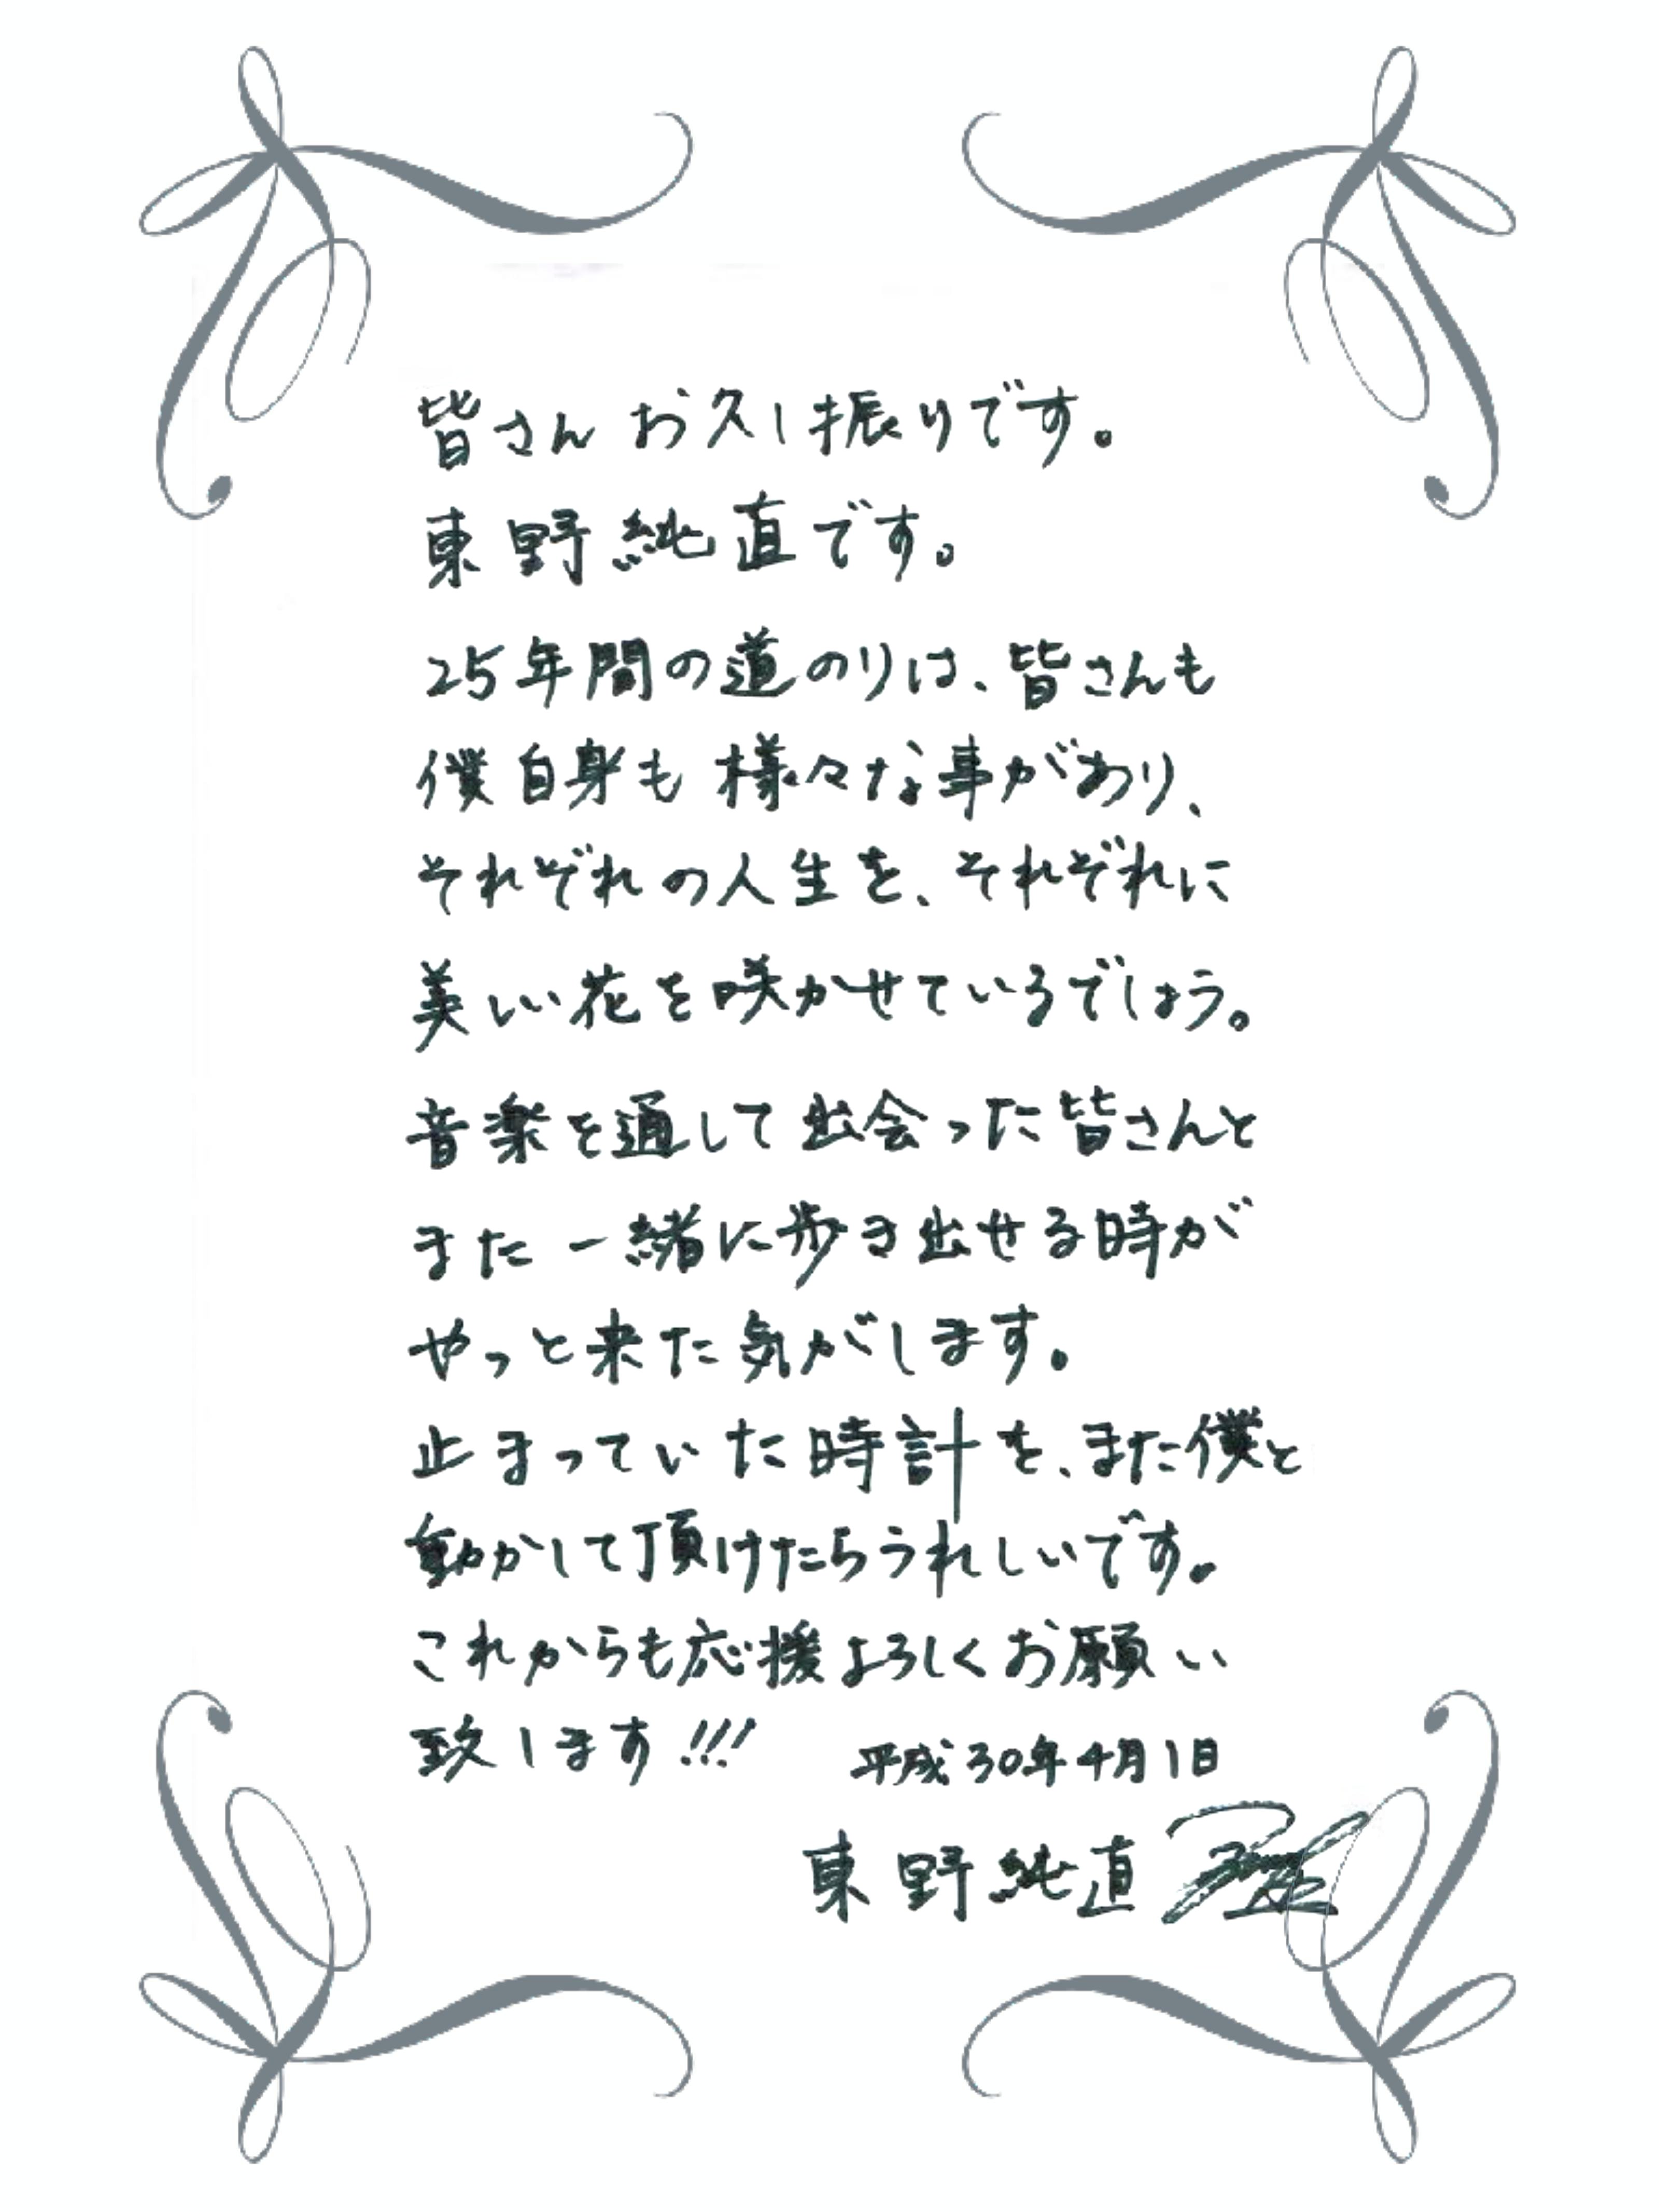 皆さん お久し振りです。
東野純直です。
25年間の道のりは、皆さんも
僕自身も 様々な事があり、
それぞれの人生を、それぞれに
美しい花を咲かせているでしょう。
音楽を通して 出会った皆さんと
また 一緒に歩き出せる時が
やっと来た気がします。
止まっていた時計を、また僕と
動かして頂けたらうれしいです。
これからも応援よろしくお願い
致します!!!
平成30年4月1日
東野純直